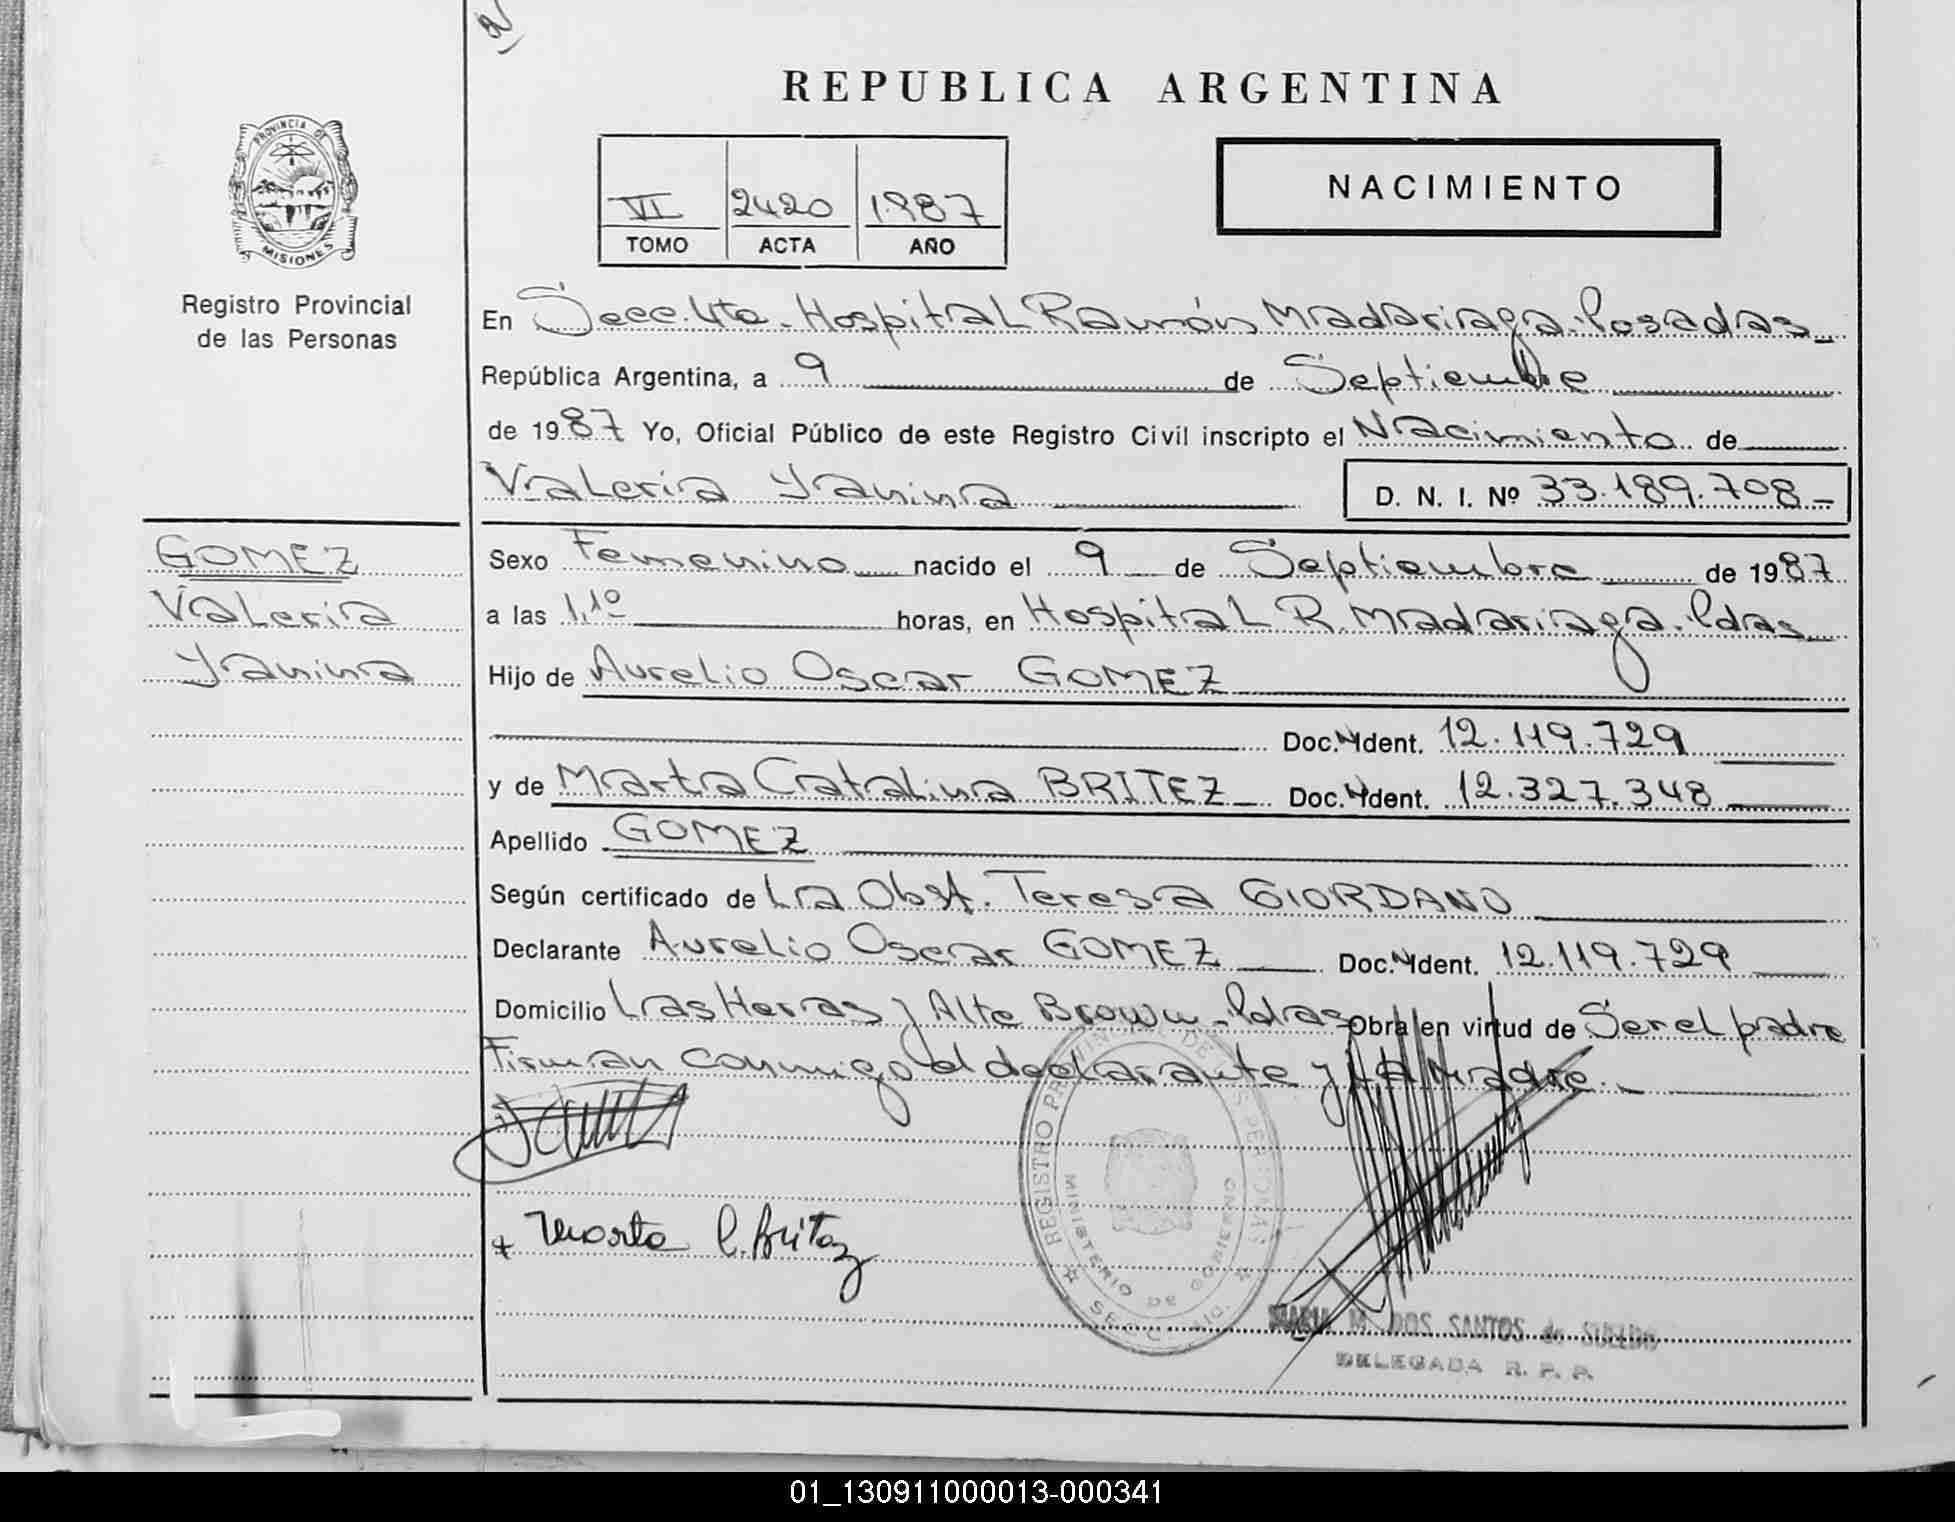 REPUBLICA ARGENTINA
PROVINCIA DE
MISIONES
Registro Provincial
de las Personas
VI 2420 1987
TOMO ACTA AÑO
NACIMIENTO
En Secc. 4ta. Hospital Ramón Madariaga. Posadas
República Argentina, a 9 de Septiembre
de 1987 Yo, Oficial Público de este Registro Civil inscripto el Nacimiento de
Valeria Yanina D. N. I. Nº 33.189.708.-
GOMEZ
Valeria
Yanina
Sexo Femenino nacido el 9 de Septiembre de 1987
a las 1,10 horas, en Hospital R. Madariaga. Pdas
Hijo de Aurelio Oscar GOMEZ
Doc. Ident. 12.119.729
y de Marta Catalina BRITEZ Doc. Ident. 12.327.348
Apellido GOMEZ
Según certificado de La Obst. Teresa GIORDANO
Declarante Aurelio Oscar GOMEZ Doc. Ident. 12.119.729
Domicilio Las Heras y Alte Brown. Pdas Obra en virtud de Ser el padre
Firman conmigo el declarante y LA Madre.
Marta C. Britez
REGISTRO PROVINCIAL DE LAS PERSONAS
MINISTERIO DE GOBIERNO
SECC.
MARIA M. DOS SANTOS de
DELEGADA R. P. P.
01_130911000013-000341